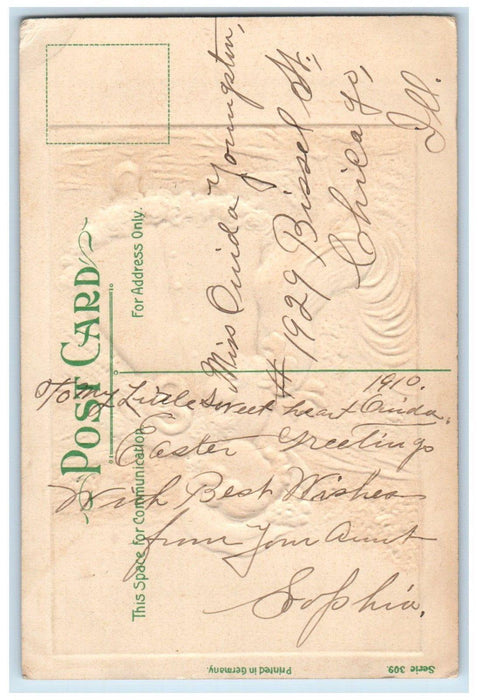 POST CARD
This Space for Communication
For Address Only.
Miss Onida Youngston,
# 1929 Bissel St.
Chicago,
Ill.
1910.
To My Little Sweet heart Onida.
Easter Greetings
With Best Wishes
from Your Aunt
Sophia.
Printed in Germany.
Serie 309.